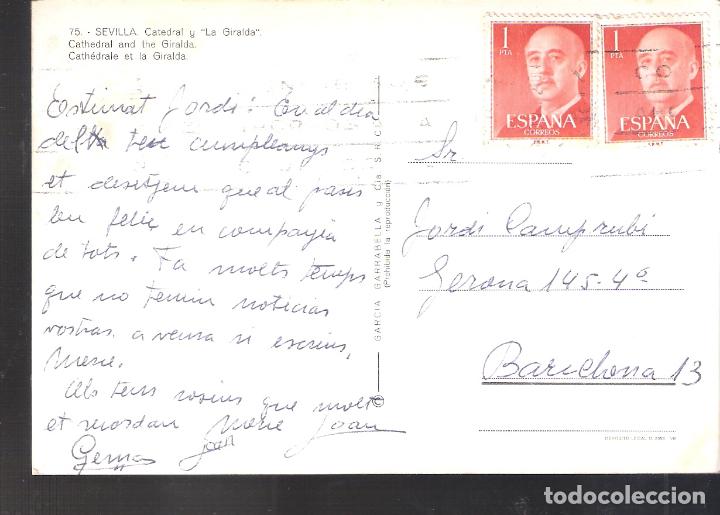 75. - SEVILLA. Catedral y "La Giralda".
Cathedral and the Giralda.
Cathédrale et la Giralda.
1
PTA
ESPAÑA
CORREOS
F.N.M.T.
1
PTA
ESPAÑA
CORREOS
F.N.M.T.
Estimat Jordi: En al dia
del teu cumpleanys
et desitgem que al pasis
ben feliç en compañia
de tots. Fa molts temps
que no tenim noticias
vostras a veura si escrius,
Mene.
Als teus cosins que molt
et recordan Mene Joan
Gemma Joan
© GARCIA GARRABELLA y Cía. S.R.C.
(Prohibida la reproducción)
Sr
Jordi Camprubi
Gerona 145-4º
Barcelona 13
DEPÓSITO LEGAL B.
todocoleccion.net